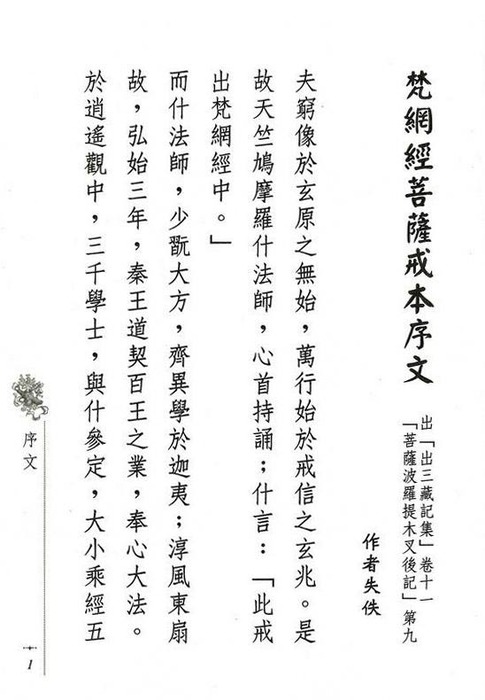 梵網經菩薩戒本序文
出「出三藏記集」卷十一
「菩薩波羅提木叉後記」第九
作者失佚
夫窮像於玄原之無始，萬行始於戒信之玄兆。是
故天竺鳩摩羅什法師，心首持誦；什言：「此戒
出梵網經中。」
而什法師，少翫大方，齊異學於迦夷；淳風東扇
故，弘始三年，秦王道契百王之業，奉心大法。
於逍遙觀中，三千學士，與什參定，大小乘經五
序文
1